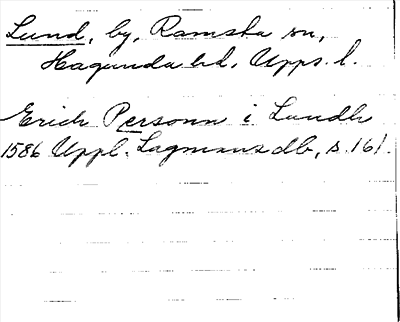 Lund, by, Ramsta sn,
Hagunda hd, Upps. l.
Erich Personn i Lundh
1586 Uppl. Lagmansdb, s. 161.